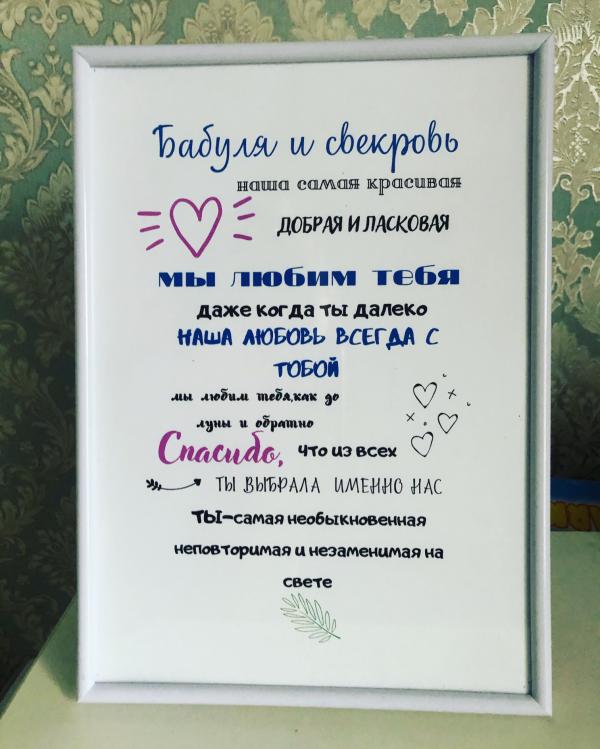 Бабуля и свекровь
наша самая красивая
ДОБРАЯ И ЛАСКОВАЯ
мы любим тебя
даже когда ты далеко
НАША ЛЮБОВЬ ВСЕГДА С
ТОБОЙ
мы любим тебя,как до
луны и обратно
Спасибо, что из всех
ТЫ ВЫБРАЛА ИМЕННО НАС
ТЫ-самая необыкновенная
неповторимая и незаменимая на
свете